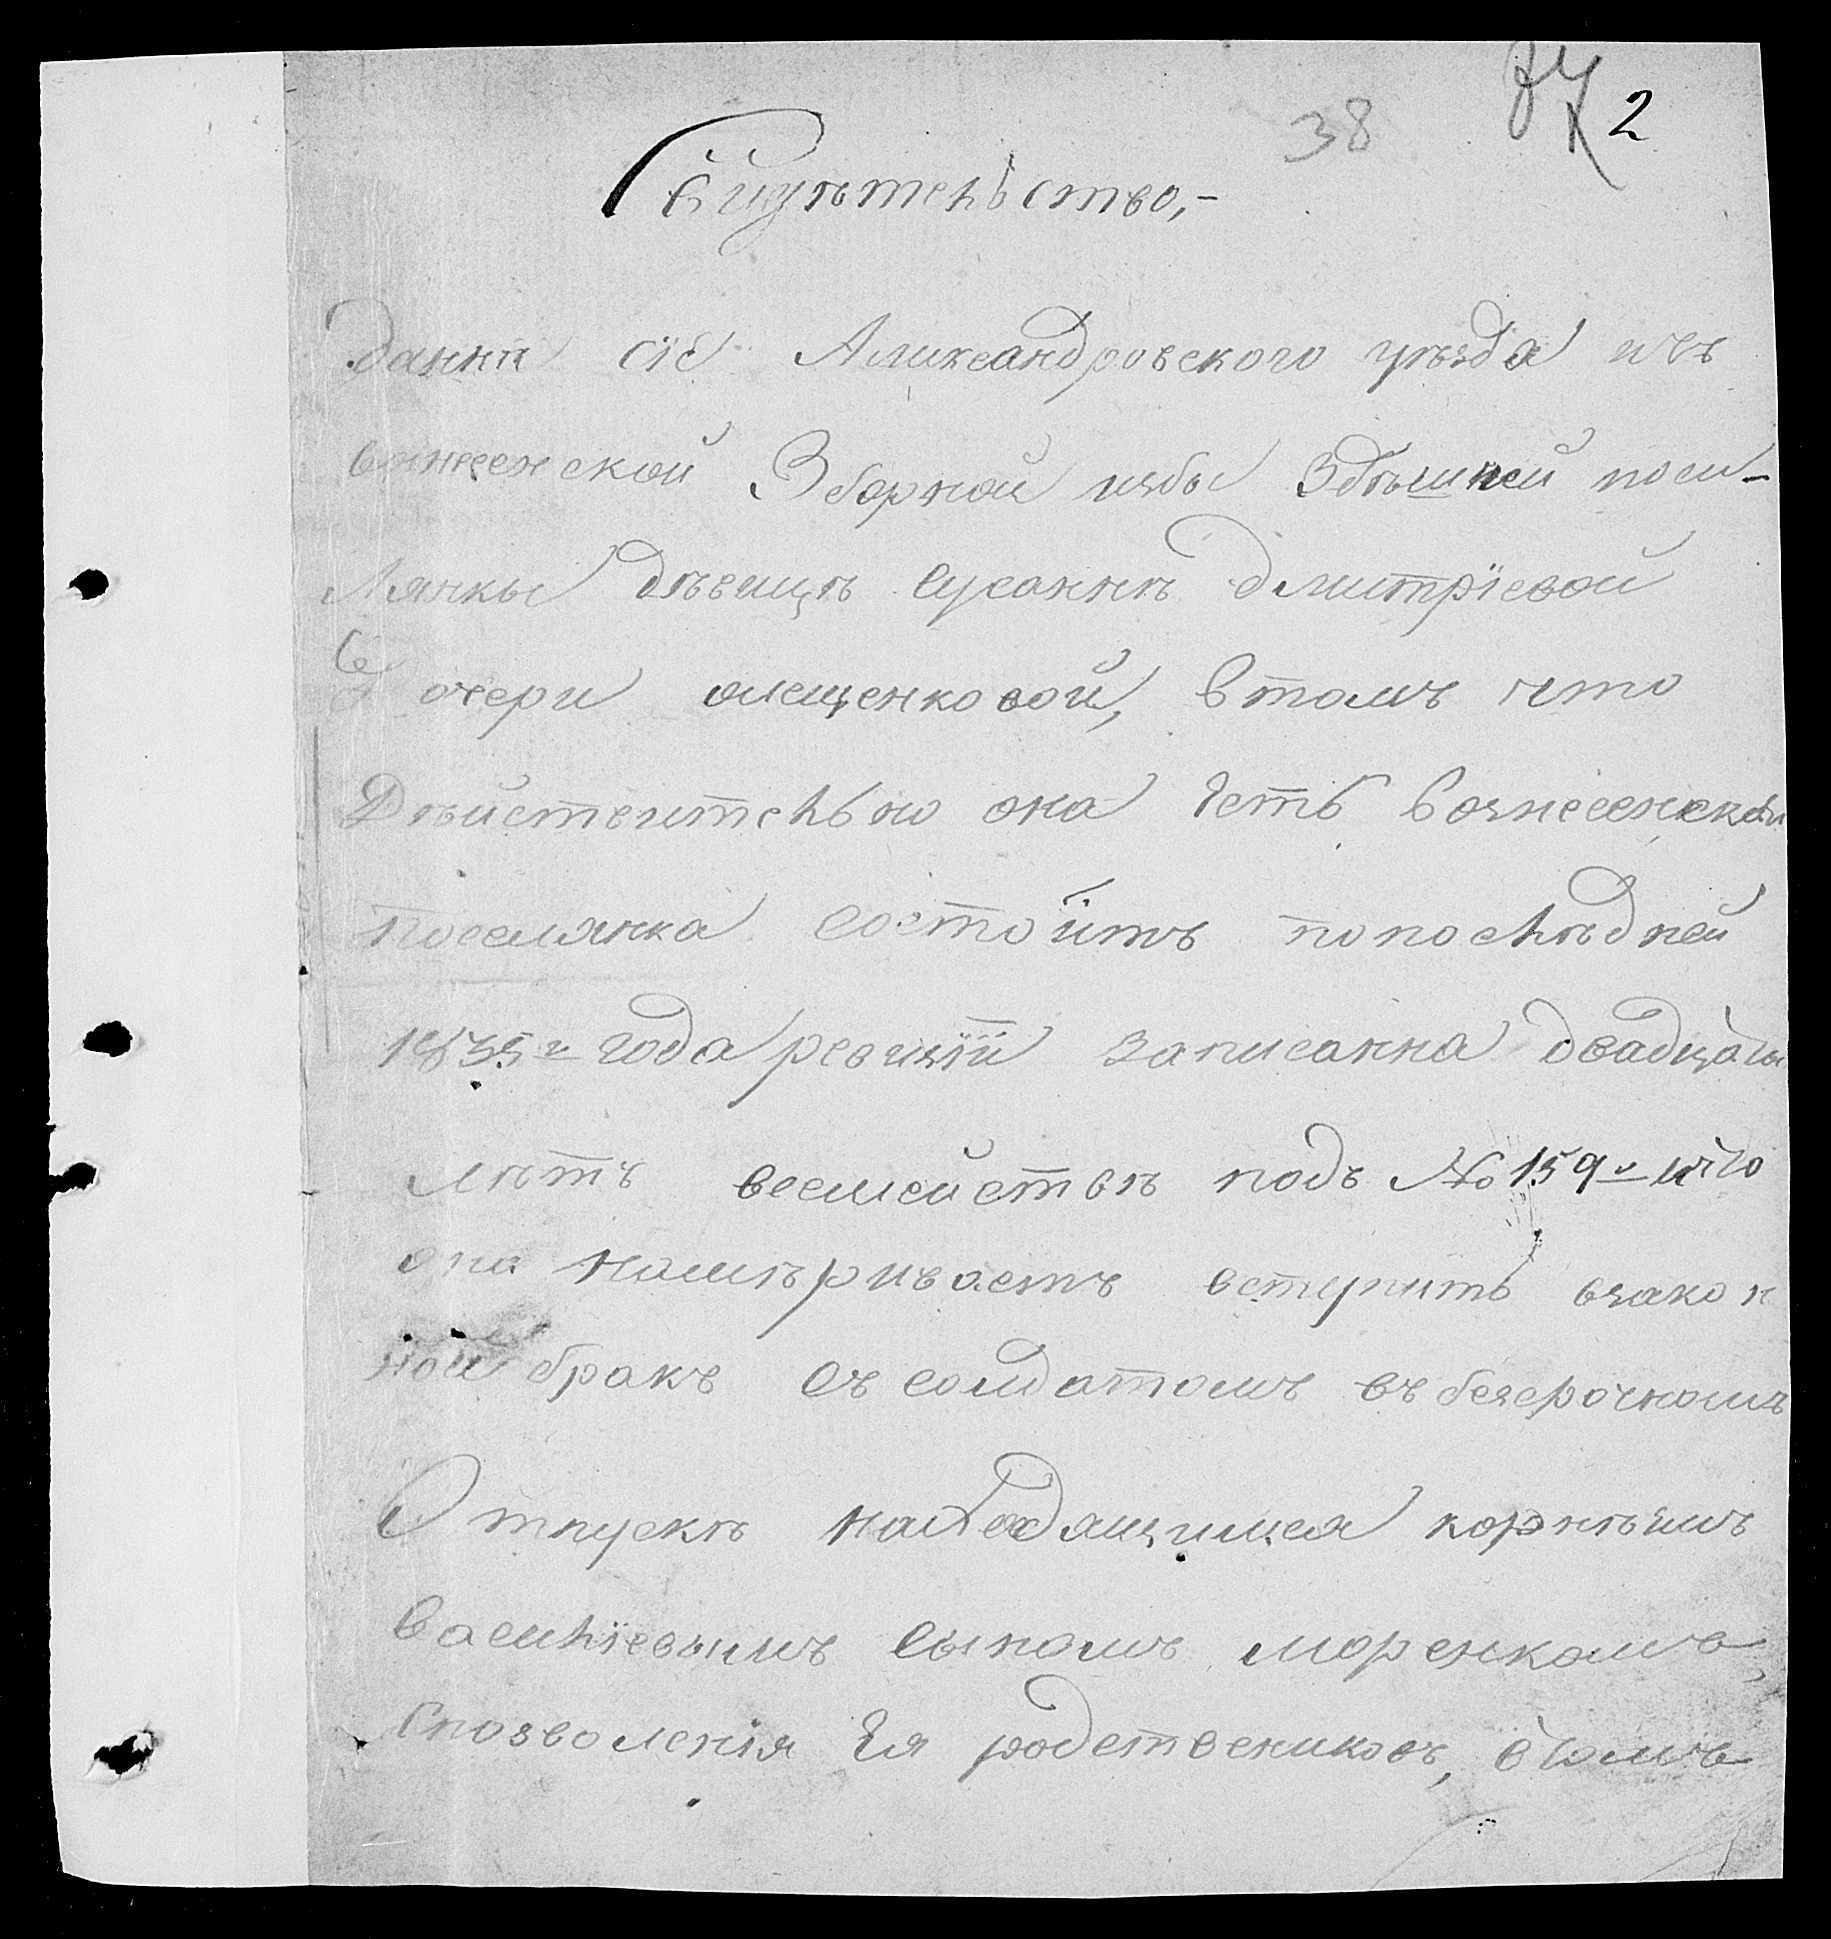 38 2
Свидѣтельство,-
Данна сїе Александровского уѣзда изъ
внесенской Зборной избы Здѣшней посе-
лянкы дѣвицѣ Сусаннѣ дмитрїевой
дочери олещенковой, втомъ что
Дѣйствительно она Есть вознесенской
поселянка состоитъ попослѣдней
1835го года ревизїи записанна двадцаты
лѣтъ всемействѣ подъ № 159м ичто
она намѣриваетъ вступить взакон
ной бракъ съ солдатомъ въ безсрочномъ
Отпускѣ находящимся корнѣимъ
василїевымъ сыномъ моренкомъ,
спозволенїя Ея родствениковъ, втомъ